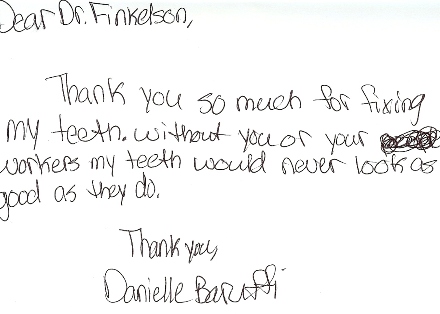 Dear Dr. Finkelson,
Thank you so much for fixing
my teeth. without you or your
workers my teeth would never look as
good as they do.
Thank you,
Danielle